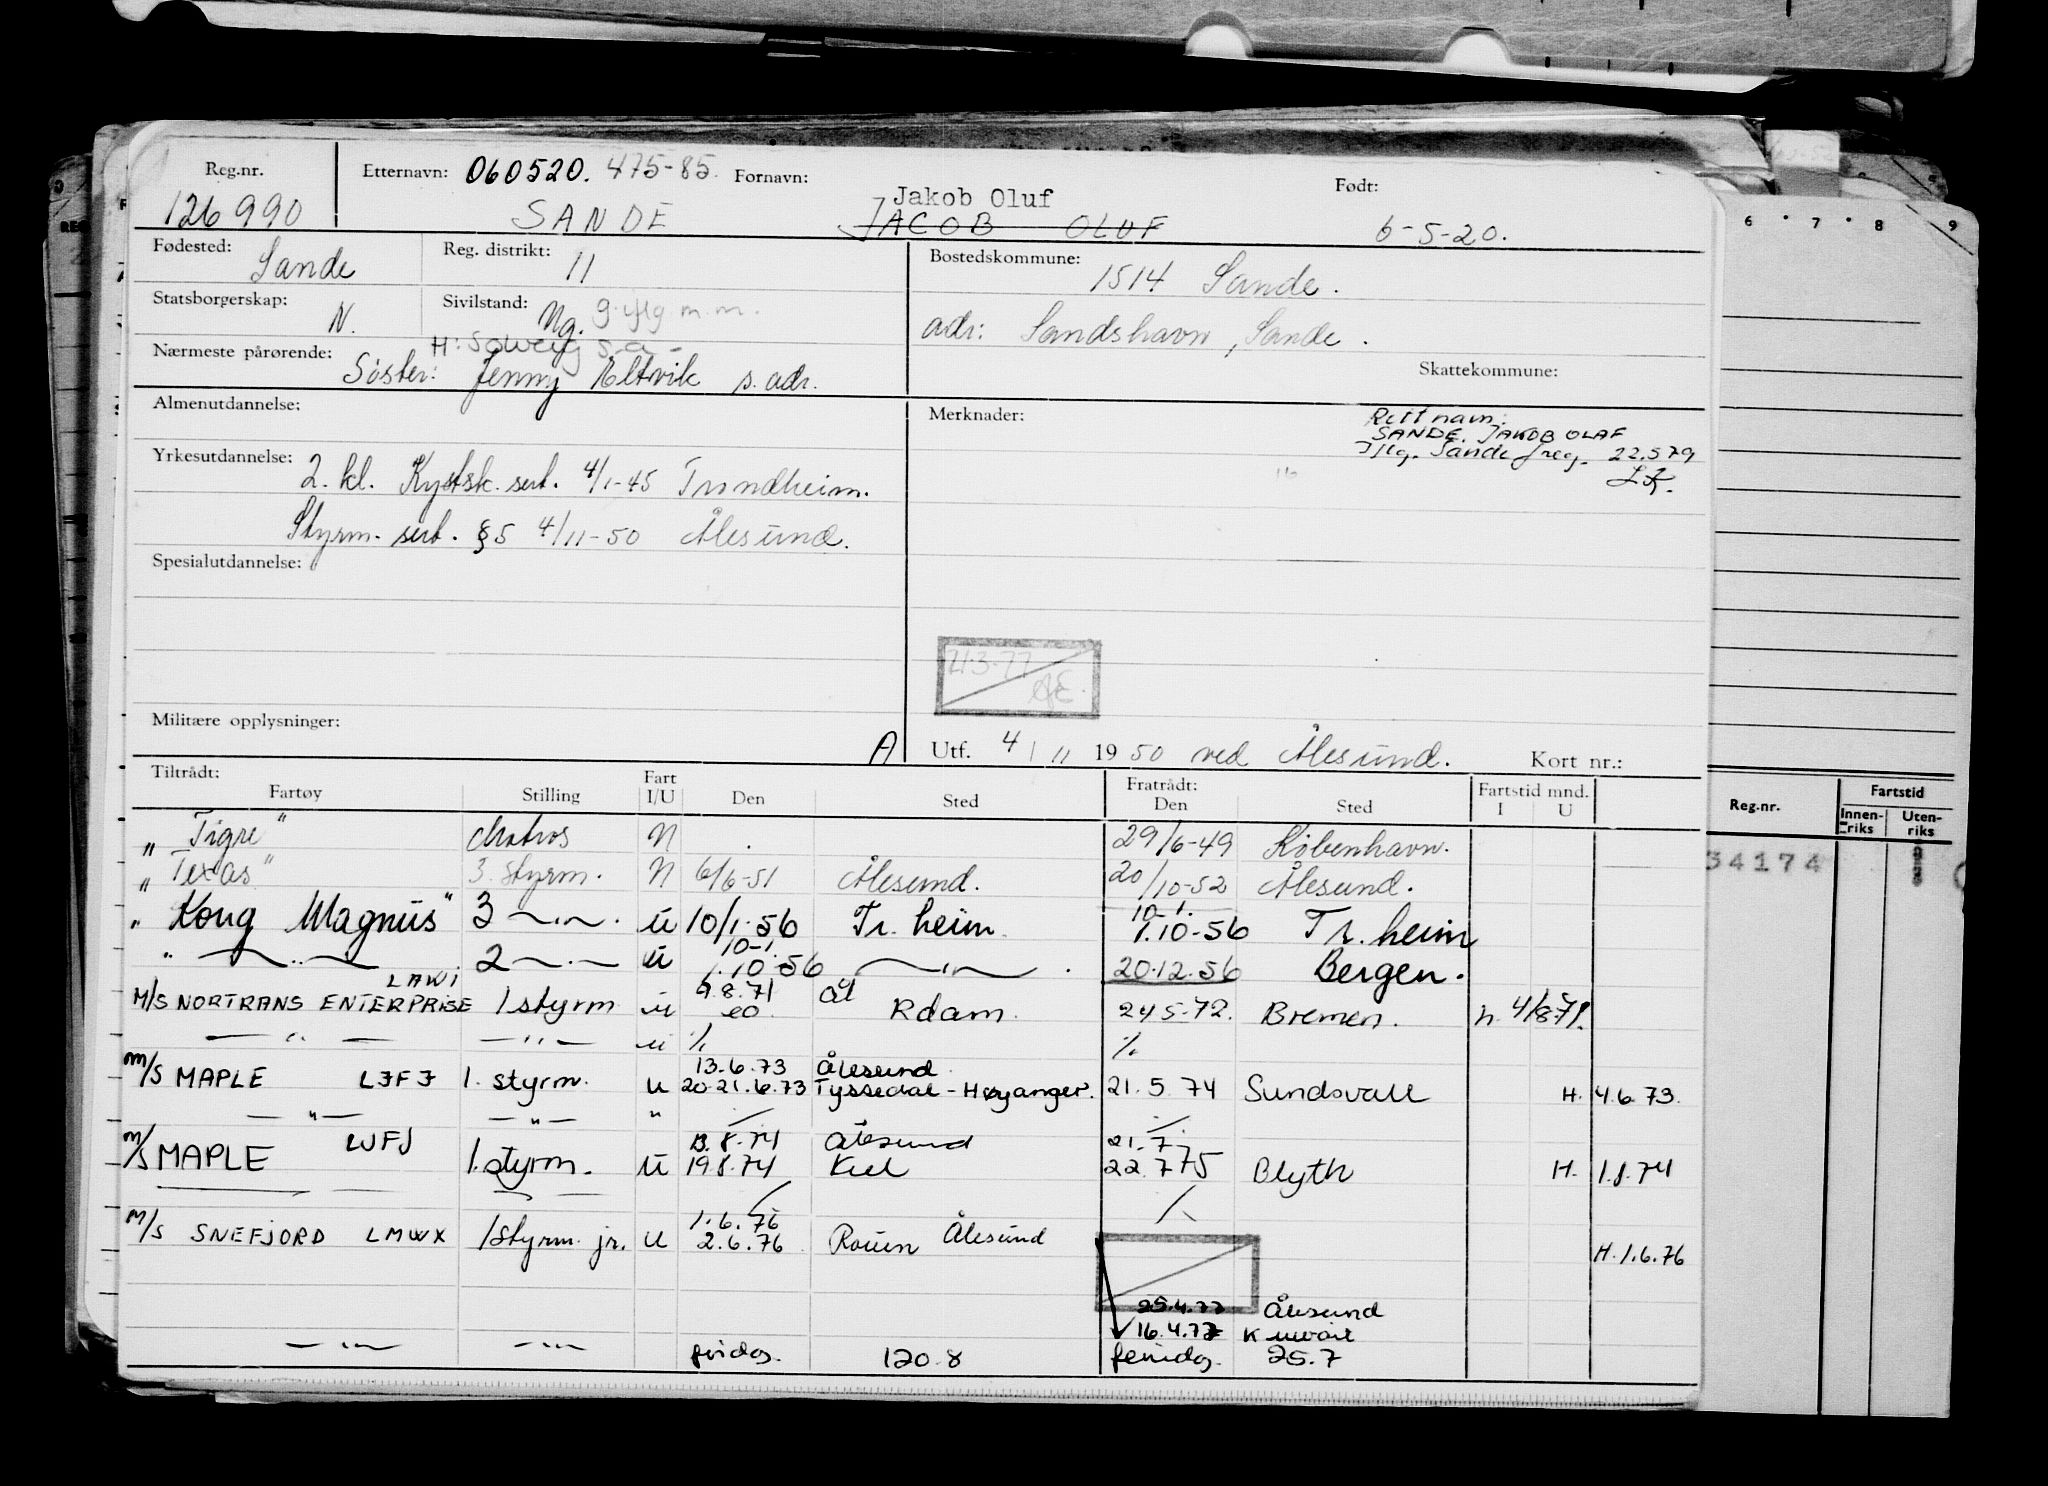 Reg.nr. Etternavn: 060520. 475-85. Fornavn: Født:
126990 SANDE Jakob Oluf
JACOB OLUF 6-5-20.
Fødested: Sande Reg. distrikt: 11 Bostedskommune: 1514 Sande.
Statsborgerskap: N. Sivilstand: Ug. gift m.m. adr: Sandshavn, Sande.
H: Solveig s.a.
Nærmeste pårørende: Söster: Jenny Eltvik s. adr.
Skattekommune:
Almenutdannelse: Merknader: Rett navn:
SANDE, JAKOB OLAF
Iflg. Sande freg. 22.5.79
Yrkesutdannelse: 2. kl. Kystsk. sert. 4/1-45 Trondheim.
Styrm. sert. §5 4/11-50 Ålesund.
Spesialutdannelse:
21.3.77
Militære opplysninger:
A Utf. 4/11 1950 ved Ålesund. Kort nr.:
Tiltrådt: Fart Fratrådt: Fartstid mnd.
Fartøy Stilling I/U Den Sted Den Sted I U
„ Tigre" Matros N 29/6-49 København.
„ Texas" 3. Styrm. N 6/6-51 Ålesund. 20/10-52 Ålesund.
„ Kong Magnus" 3 —„—. u 10/1-56 Tr. heim. 10-1.
1.10-56 Tr. heim
„ —„— 2 —„— u 10-1.
1.10-56 —„—. 20.12.56 Bergen.
LAWI
M/S NORTRANS ENTERPRISE 1styrm u 9.8.71 Ål
Rdam. 24.5.72. Bremen. h. 4/8.71.
—„— —„— u ./. ./.
m/s MAPLE LJFJ 1. styrm. u 13.6.73 Ålesund
20-21.6.73 Tyssedal - Høyanger. 21.5.74 Sundsvall H. 4.6.73.
—„— —„— "
m/s MAPLE LJFJ 1.styrm. u 13.8.74 Ålesund
19.8.74 Kiel 21.7.
22.7.75 Blyth H. 1.8.74
M/S SNEFJORD LMWX 1styrm. jr. u 1.6.76
2.6.76 Rouen Ålesund H. 1.6.76
25.4.77 Ålesund
16.4.77 Kuwait
—„— —„— fridg. 120.8 feridg. 25.7
Reg.nr. Fartstid
Innenriks Utenriks
34174
6 7 8 9